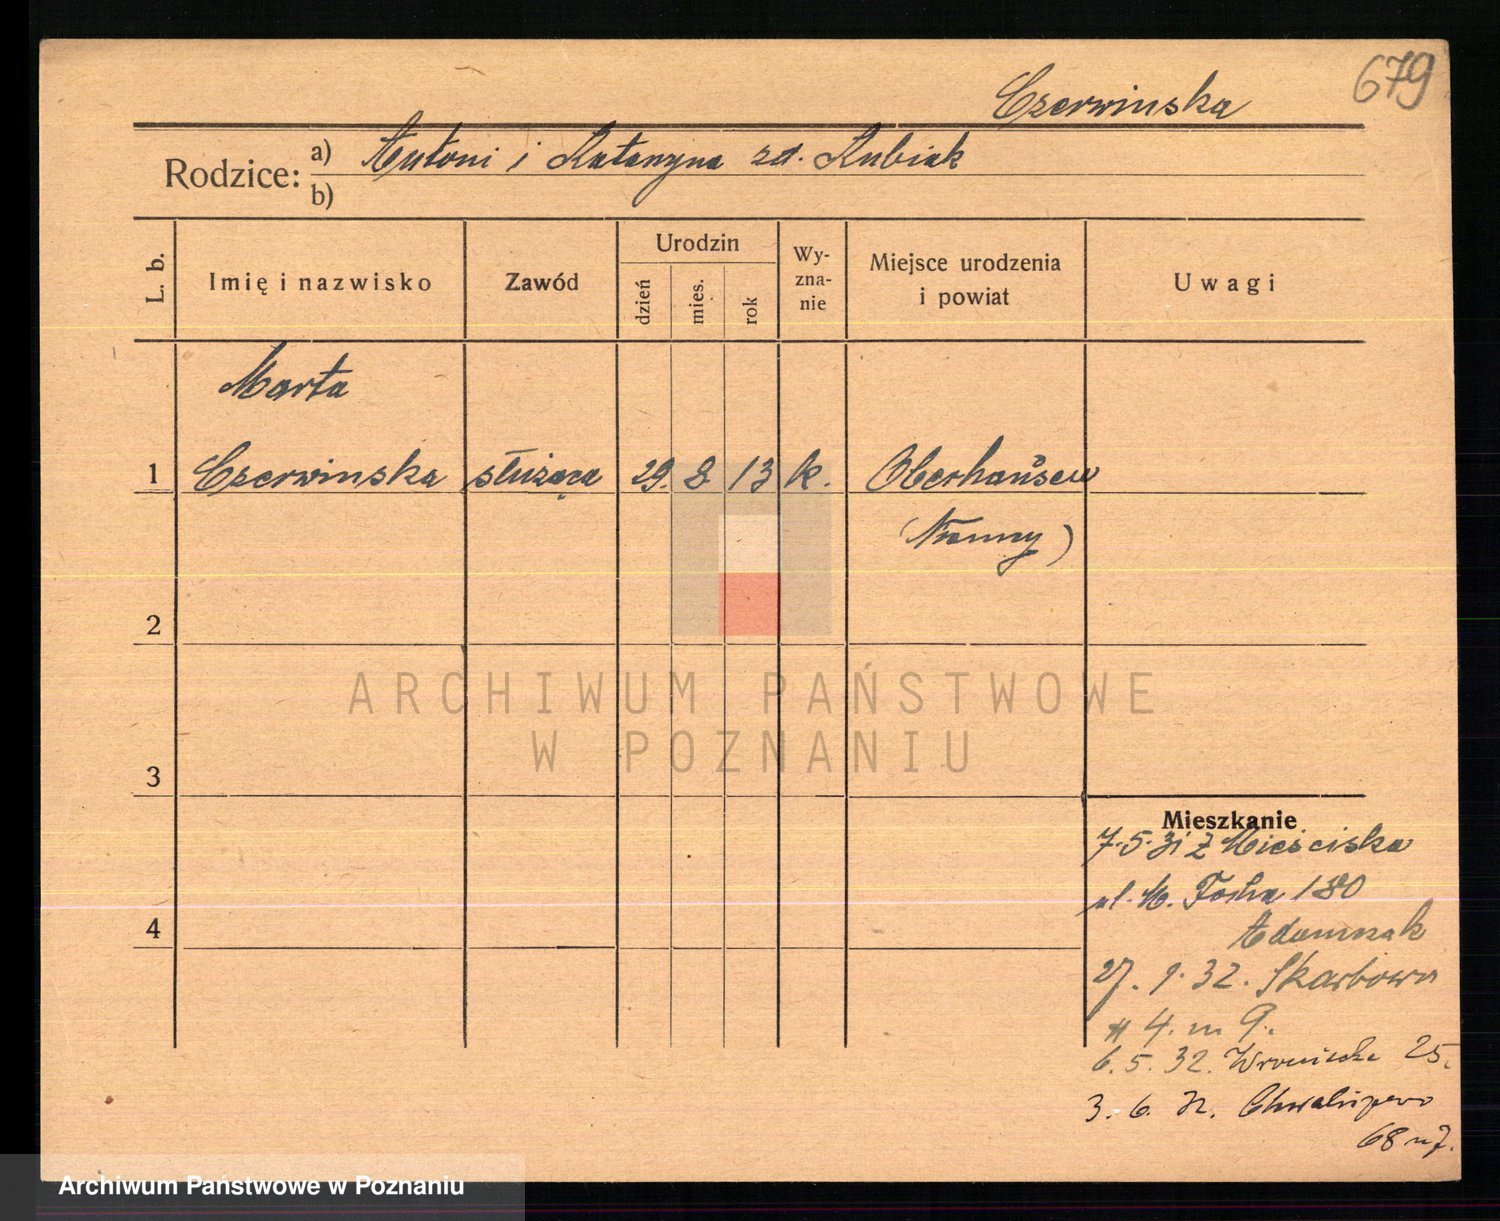 679
Czerwinska
Rodzice: a) Antoni i Katarzyna zd. Kubiak
b)
L. b.
Imię i nazwisko
Zawód
Urodzin
dzień
mies.
rok
Wy-
zna-
nie
Miejsce urodzenia
i powiat
Uwagi
Marta
1 Czerwinska służąca 29. 8 13 k. Oberhausen
(Niemcy)
2
3
4
Mieszkanie
7.5.31 z Mieściska
ul. M. Focha 180
Adamczak
27. 1. 32. Skarbowa
4. m 9.
6. 5. 32. Wroniecka 25.
3. 6. 32. Chwaliszewo
68 m 7.
ARCHIWUM PAŃSTWOWE
W POZNANIU
Archiwum Państwowe w Poznaniu